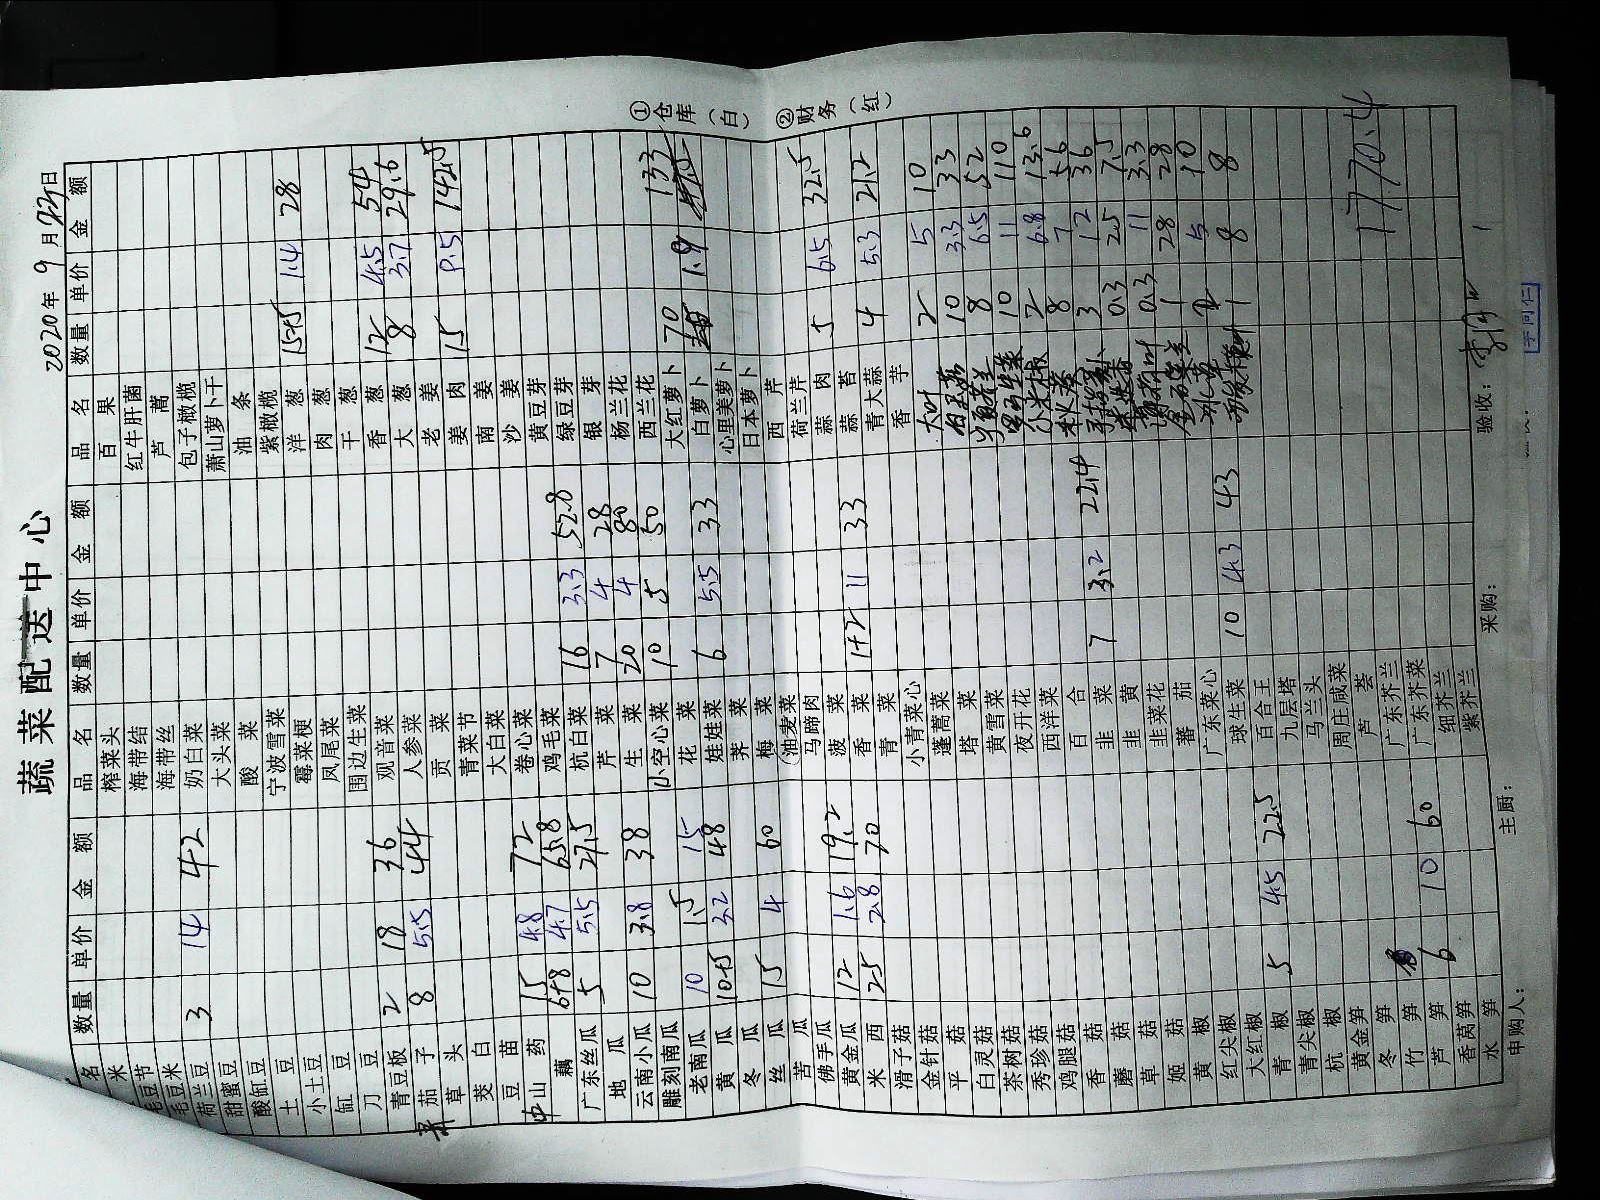 蔬菜配送中心
2020年9月27日
品名 数量 单价 金额 品名 数量 单价 金额 品名 数量 单价 金额
米 榨菜头 百果
毛豆节 海带结 红牛肝菌
毛豆米 海带丝 芦蒿
荷兰豆 3 14 42 奶白菜 包子橄榄
甜蜜豆 大头菜 萧山萝卜干
酸缸豆 酸菜 油条
土豆 宁波雪菜 紫橄榄
小土豆 霉菜梗 洋葱 15+5 1.4 28
缸豆 凤尾菜 肉葱
刀豆 围边生菜 干葱
青豆板 2 18 36 观音菜 香葱 12 4.5 54
茄子 8 5.5 44 人参菜 大葱 8 3.7 29.6
草头 贡菜 老姜
茭白 青菜节 姜肉 15 9.5 142.5
豆苗 大白菜 南姜
山药 15 4.8 72 卷心菜 沙姜
藕 6+8 4.7 65.8 鸡毛菜 黄豆芽
广东丝瓜 5 5.5 27.5 杭白菜 16 3.3 52.8 绿豆芽
地瓜 芹菜 7 4 28 银芽
云南小瓜 10 3.8 38 生菜 20 4 80 杨兰花
雕刻南瓜 小空心菜 10 5 50 西兰花
老南瓜 10 1.5 15 花菜 大红萝卜 70 1.9 133
黄瓜 10+5 3.2 48 娃娃菜 6 5.5 33 白萝卜
冬瓜 荠菜 心里美萝卜
丝瓜 15 4 60 梅菜 日本萝卜
苦瓜 油麦菜 西芹
佛手瓜 马蹄肉 荷兰芹
黄金瓜 12 1.6 19.2 菠菜 蒜肉 5 6.5 32.5
米西 25 2.8 70 香菜 1+2 11 33 蒜苔
滑子菇 青菜 青大蒜 4 5.3 21.2
金针菇 小青菜心 香芋
平菇 蓬蒿菜 大叶 2 5 10
白灵菇 塔菜 10 3.3 33
茶树菇 黄雪菜 8 6.5 52
秀珍菇 夜开花 10 11 110
鸡腿菇 西洋菜 小米椒 2 6.8 13.6
香菇 百合 8 7 56
蘑菇 韭菜 7 3.2 22.4 3 12 36
草菇 韭黄 0.3 25 7.5
姬菇 韭菜花 0.3 11 3.3
黄椒 蕃茄 1 28 28
红尖椒 广东菜心 2 5 10
大红椒 球生菜 10 4.3 43 1 8 8
青椒 5 4.5 22.5 百合王
青尖椒 九层塔
杭椒 马兰头
黄金笋 周庄咸菜
冬笋 芦荟
竹笋 广东芥兰
芦笋 6 10 60 广东芥菜
香莴笋 细芥兰
水笋 紫芥兰
1770.4
申购人： 主厨： 采购： 验收：
①仓库（白）
②财务（红）